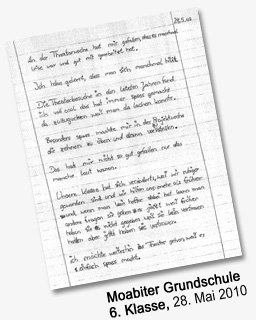 28.5.10
An der Theaterwoche hat mir gefallen, dass es manchmal
leise war und gut mit gearbeitet hat.
Ich habe gelernt, dass man sich manchmal hilft.
Die Theaterbesuche in den letzten Jahren fand
ich voll cool, das hat immer spass gemacht
da zuzugucken weil man da lachen konnte.
Besonders spass machte mir in der Projektwoche
die zu und dann
Das hat mir nicht so gut gefallen das
manche laut waren.
Unsere Klasse hat sich verändert, weil wir ruhiger
geworden sind und wir hilfen uns mehr als früher
und wenn man kein hefter dabei hat kann man
andere fragen sie geben es jetzt weil früher
haben sie es nicht gegeben weil sie kein vertrauen
hatten aber jetzt haben sie vertrauen.
ich möchte weiterhin ins Theater gehen, weil es
einfach spass macht.
Moabiter Grundschule
6. Klasse, 28. Mai 2010